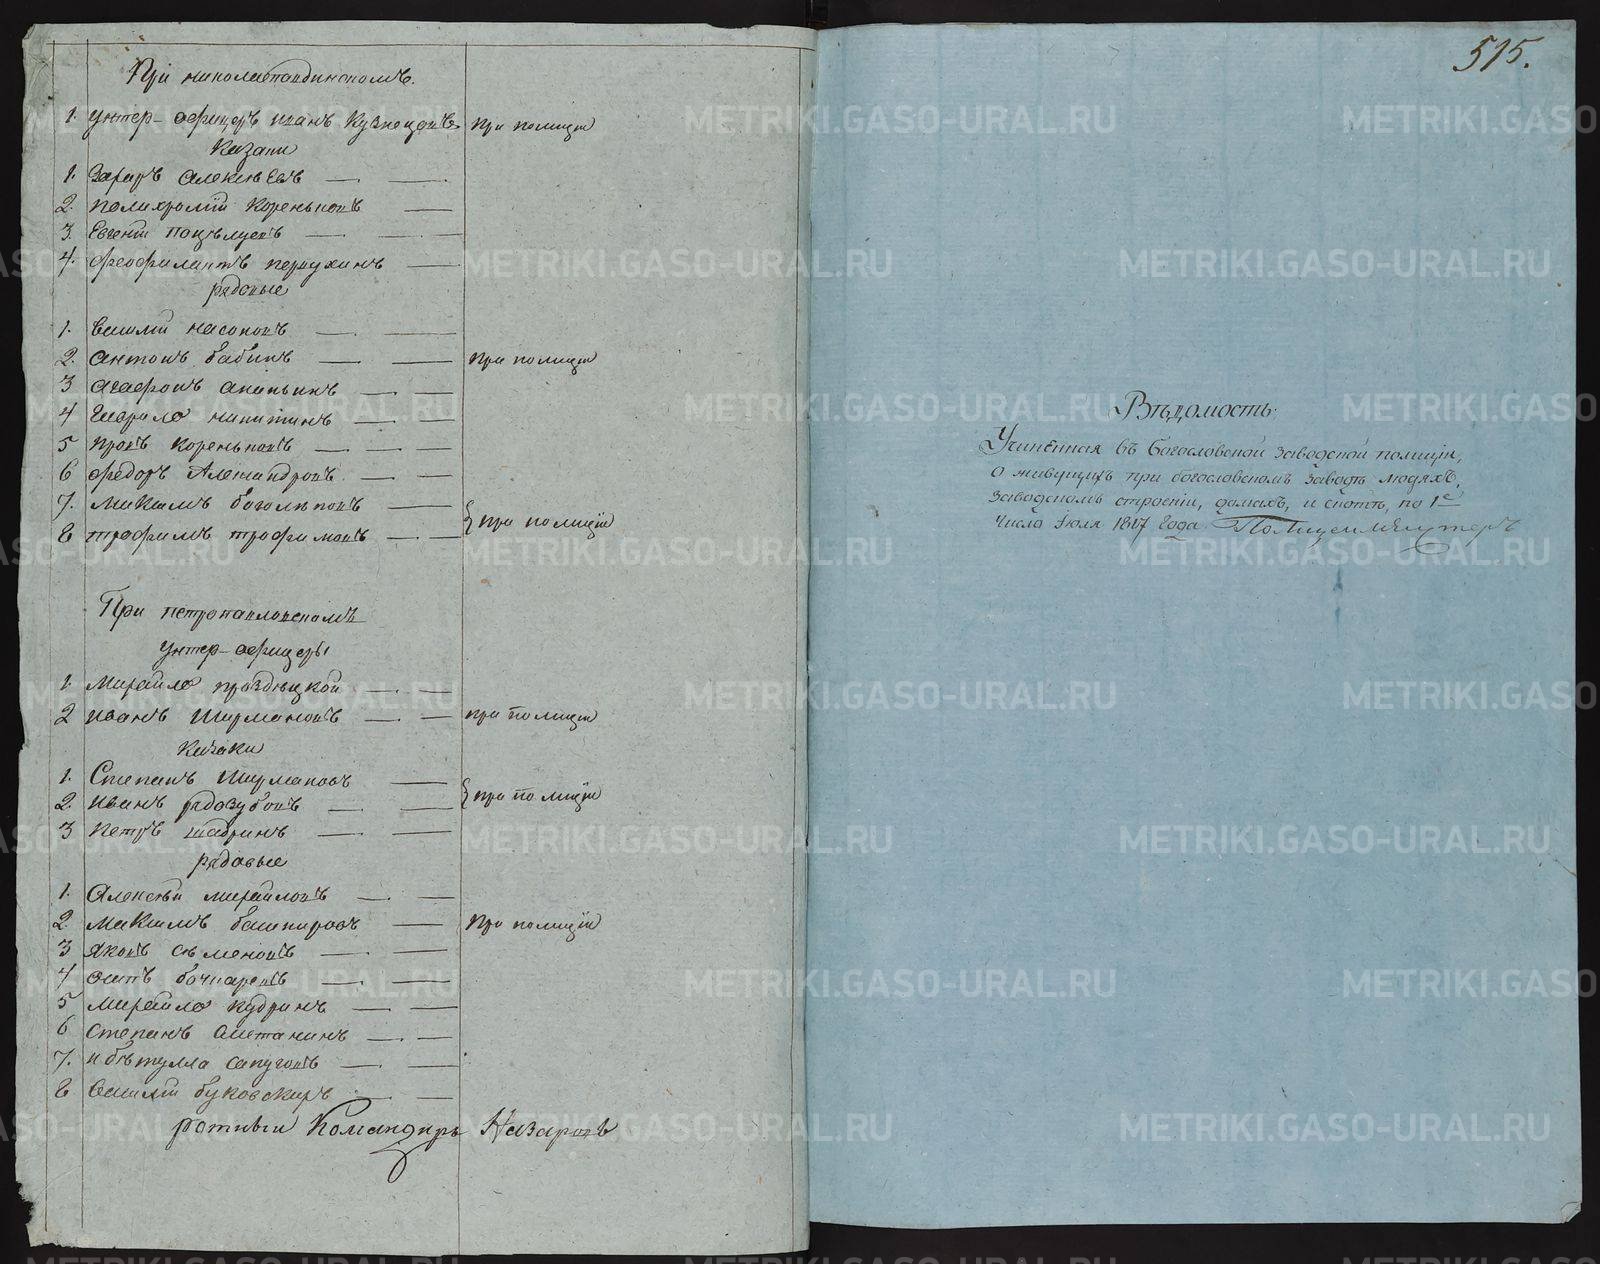 При николаепавдинскомъ.
1. унтер-офицеръ иванъ Кузнецовъ при полиции
Казаки
1. Захаръ Алексѣевъ
2. полихроній Кореньковъ
3. Евгеній поцѣлуевъ
4. феофилактъ первухинъ
рядовые
1. Василій насоновъ
2. антонъ бабинъ при полиціи
3 агафонъ ананьинъ
4 Гаврило никитинъ
5 Прокъ Кореньковъ
6 федоръ Александровъ
7. Максимъ боголѣповъ
8 трофимъ трофимовъ при полиціи
При петропавловскомъ
унтер-офицеры
1. Михайло праздницкой
2 иванъ Ширмановъ при полиціи
Казаки
1. Степанъ Ширмановъ
2. иванъ рядозубовъ при полиціи
3 петръ шабринъ
рядовые
1. Алексѣй михайловъ
2. Максимъ башкировъ при полиціи
3 яковъ сѣменовъ
4 осипъ бочкаревъ
5 Михайло кудринъ
6 степанъ сметанинъ
7. ибѣтулла сапуговъ
8 Василій буковскихъ
ротный Командиръ Назаровъ
515.
Вѣдомость.
Учинѣнная въ Богословской заводской полиціи,
о живущихъ при богословскомъ заводѣ людяхъ,
заводскомъ строеніи, домахъ, и скотѣ, по 1е
число Іюля 1817 года. Полицеймейстеръ